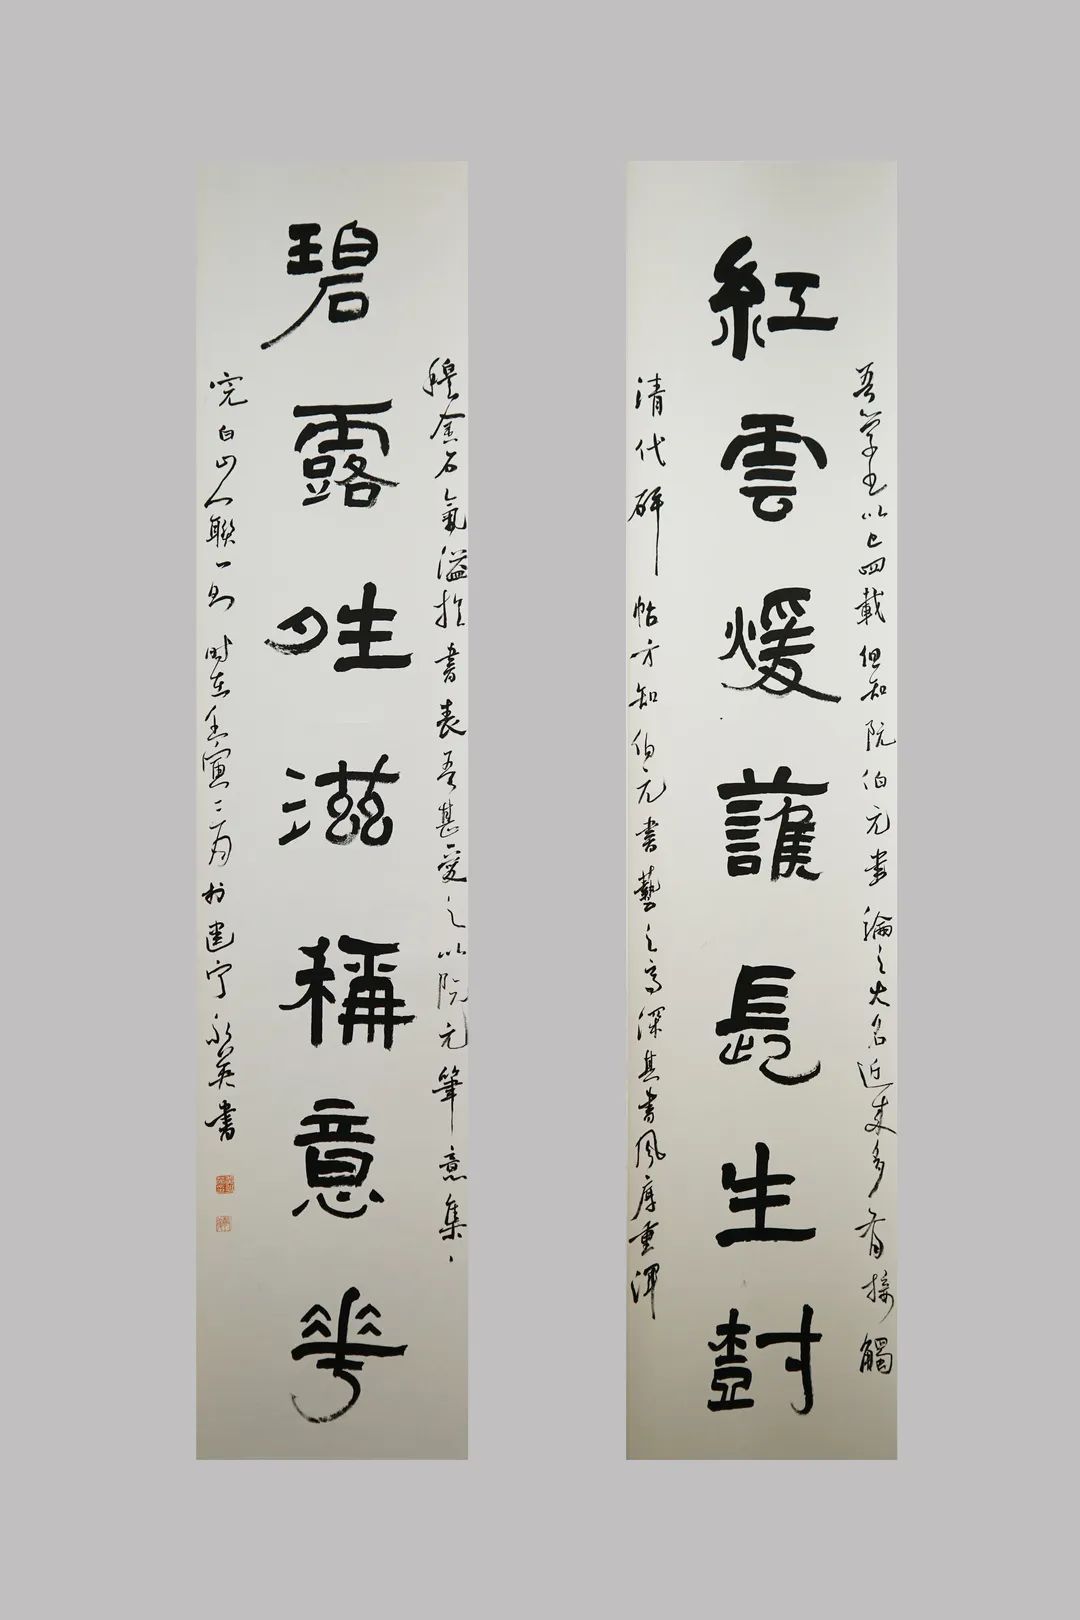 紅雲煖護長生封
吾學書以已四載但知阮伯元書論之大名近來多有接觸
清代碑帖方知伯元書藝之高深其書風厚重渾
碧露 滋稱意華
穆金石氣溢於書表吾甚愛之以阮元筆意集
完白山人聯一則時在壬寅二月於建宁永英書